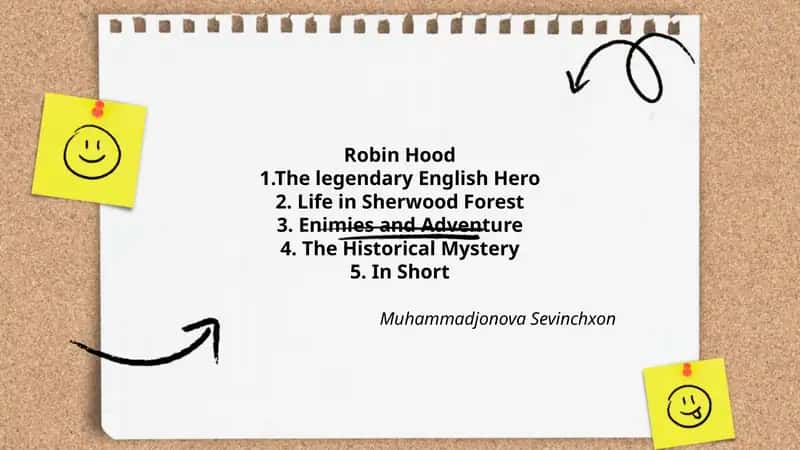 Robin Hood
1.The legendary English Hero
2. Life in Sherwood Forest
3. Enimies and Adventure
4. The Historical Mystery
5. In Short
Muhammadjonova Sevinchxon